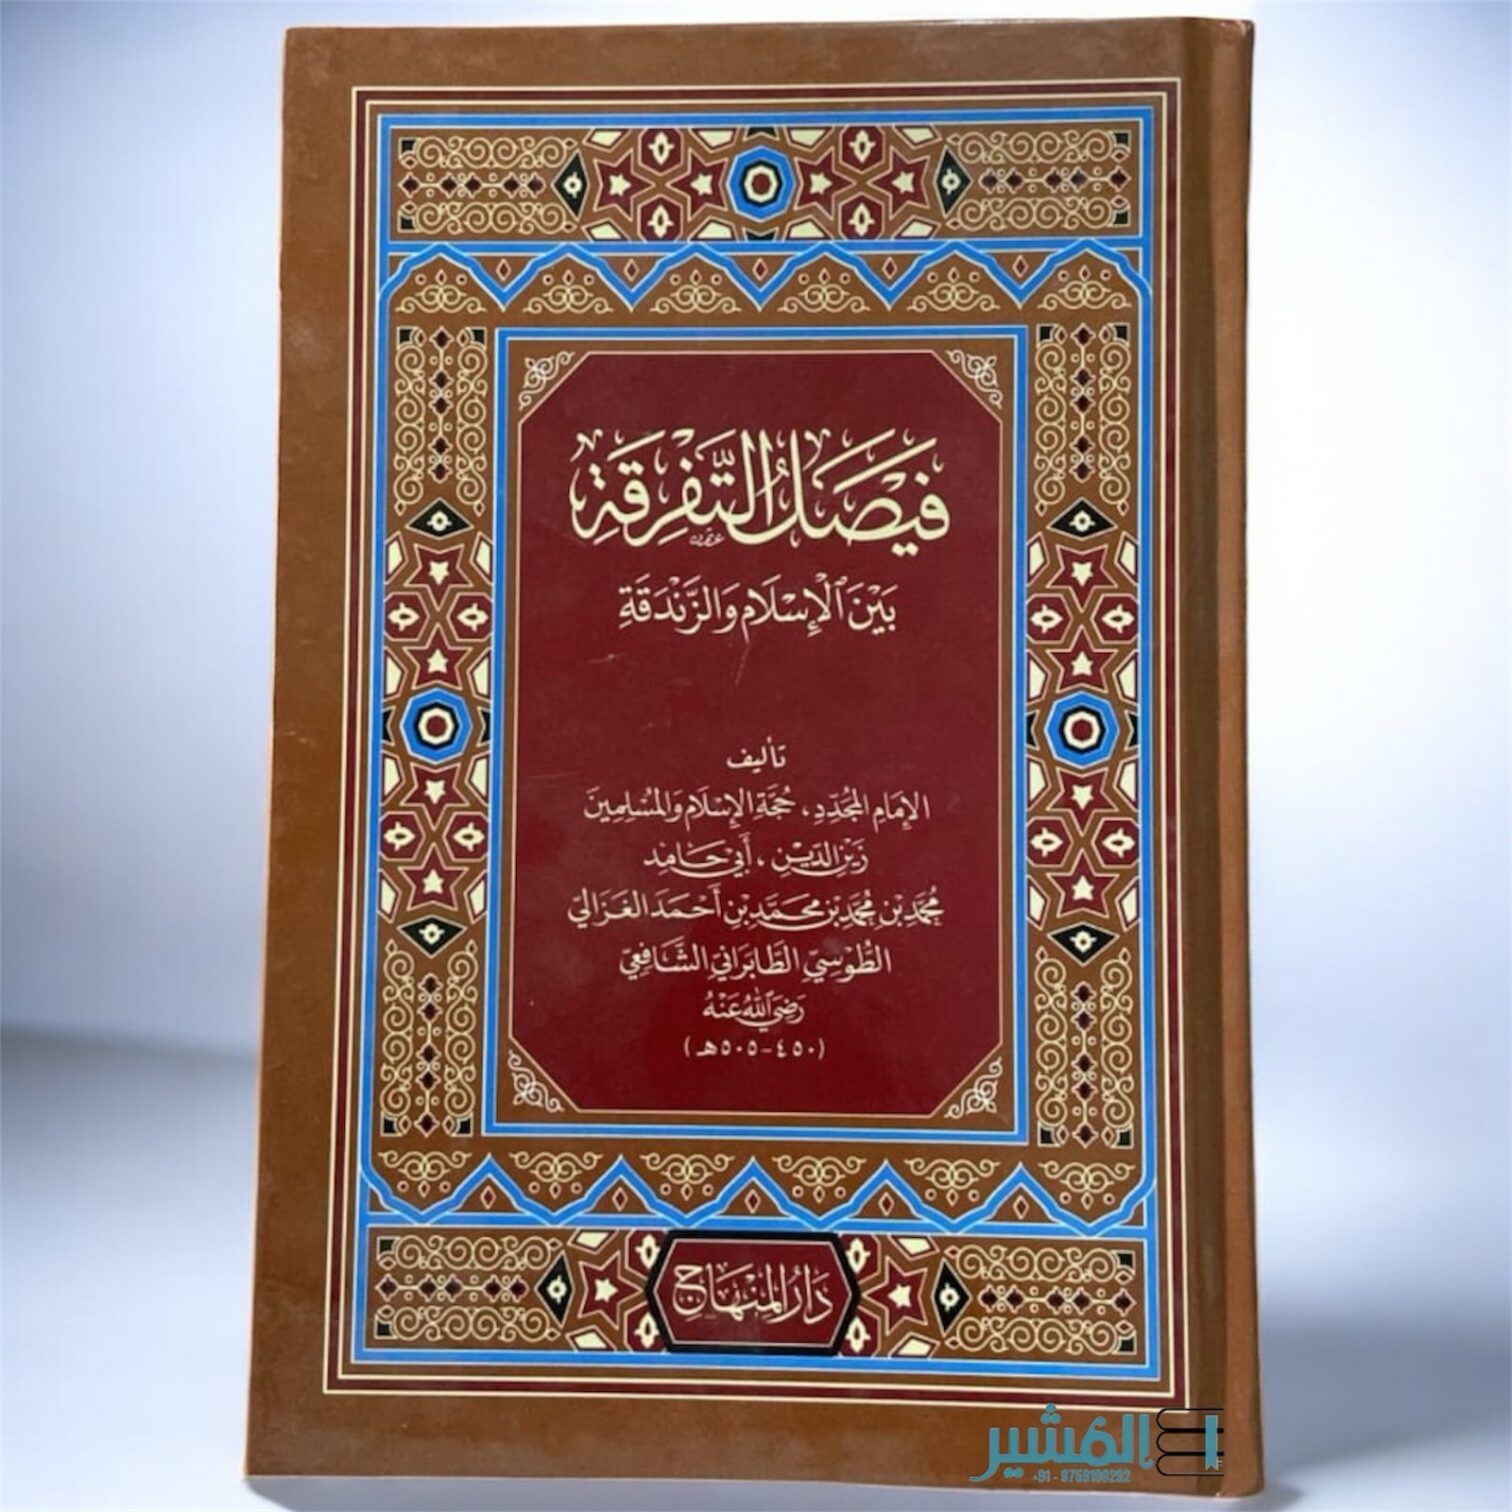 فَيْصَلُ التَّفْرِقَةِ
بَيْنَ الْإِسْلَامِ وَالزَّنْدَقَةِ
تأليف
الإِمَامِ المُجَدِّدِ، حُجَّةِ الإِسْلَامِ وَالمُسْلِمِينَ
زَيْنِ الدِّيْنِ، أَبِي حَامِدٍ
مُحَمَّدِ بْنِ مُحَمَّدِ بْنِ مُحَمَّدِ بْنِ أَحْمَدَ الغَزَالِيِّ
الطُّوْسِيِّ الطَّابَرَانِيِّ الشَّافِعِيِّ
رَضِيَ اللهُ عَنْهُ
(٤٥٠-٥٠٥هـ)
دَارُ المِنْهَاجِ
المُشير
+91 - 9759190292